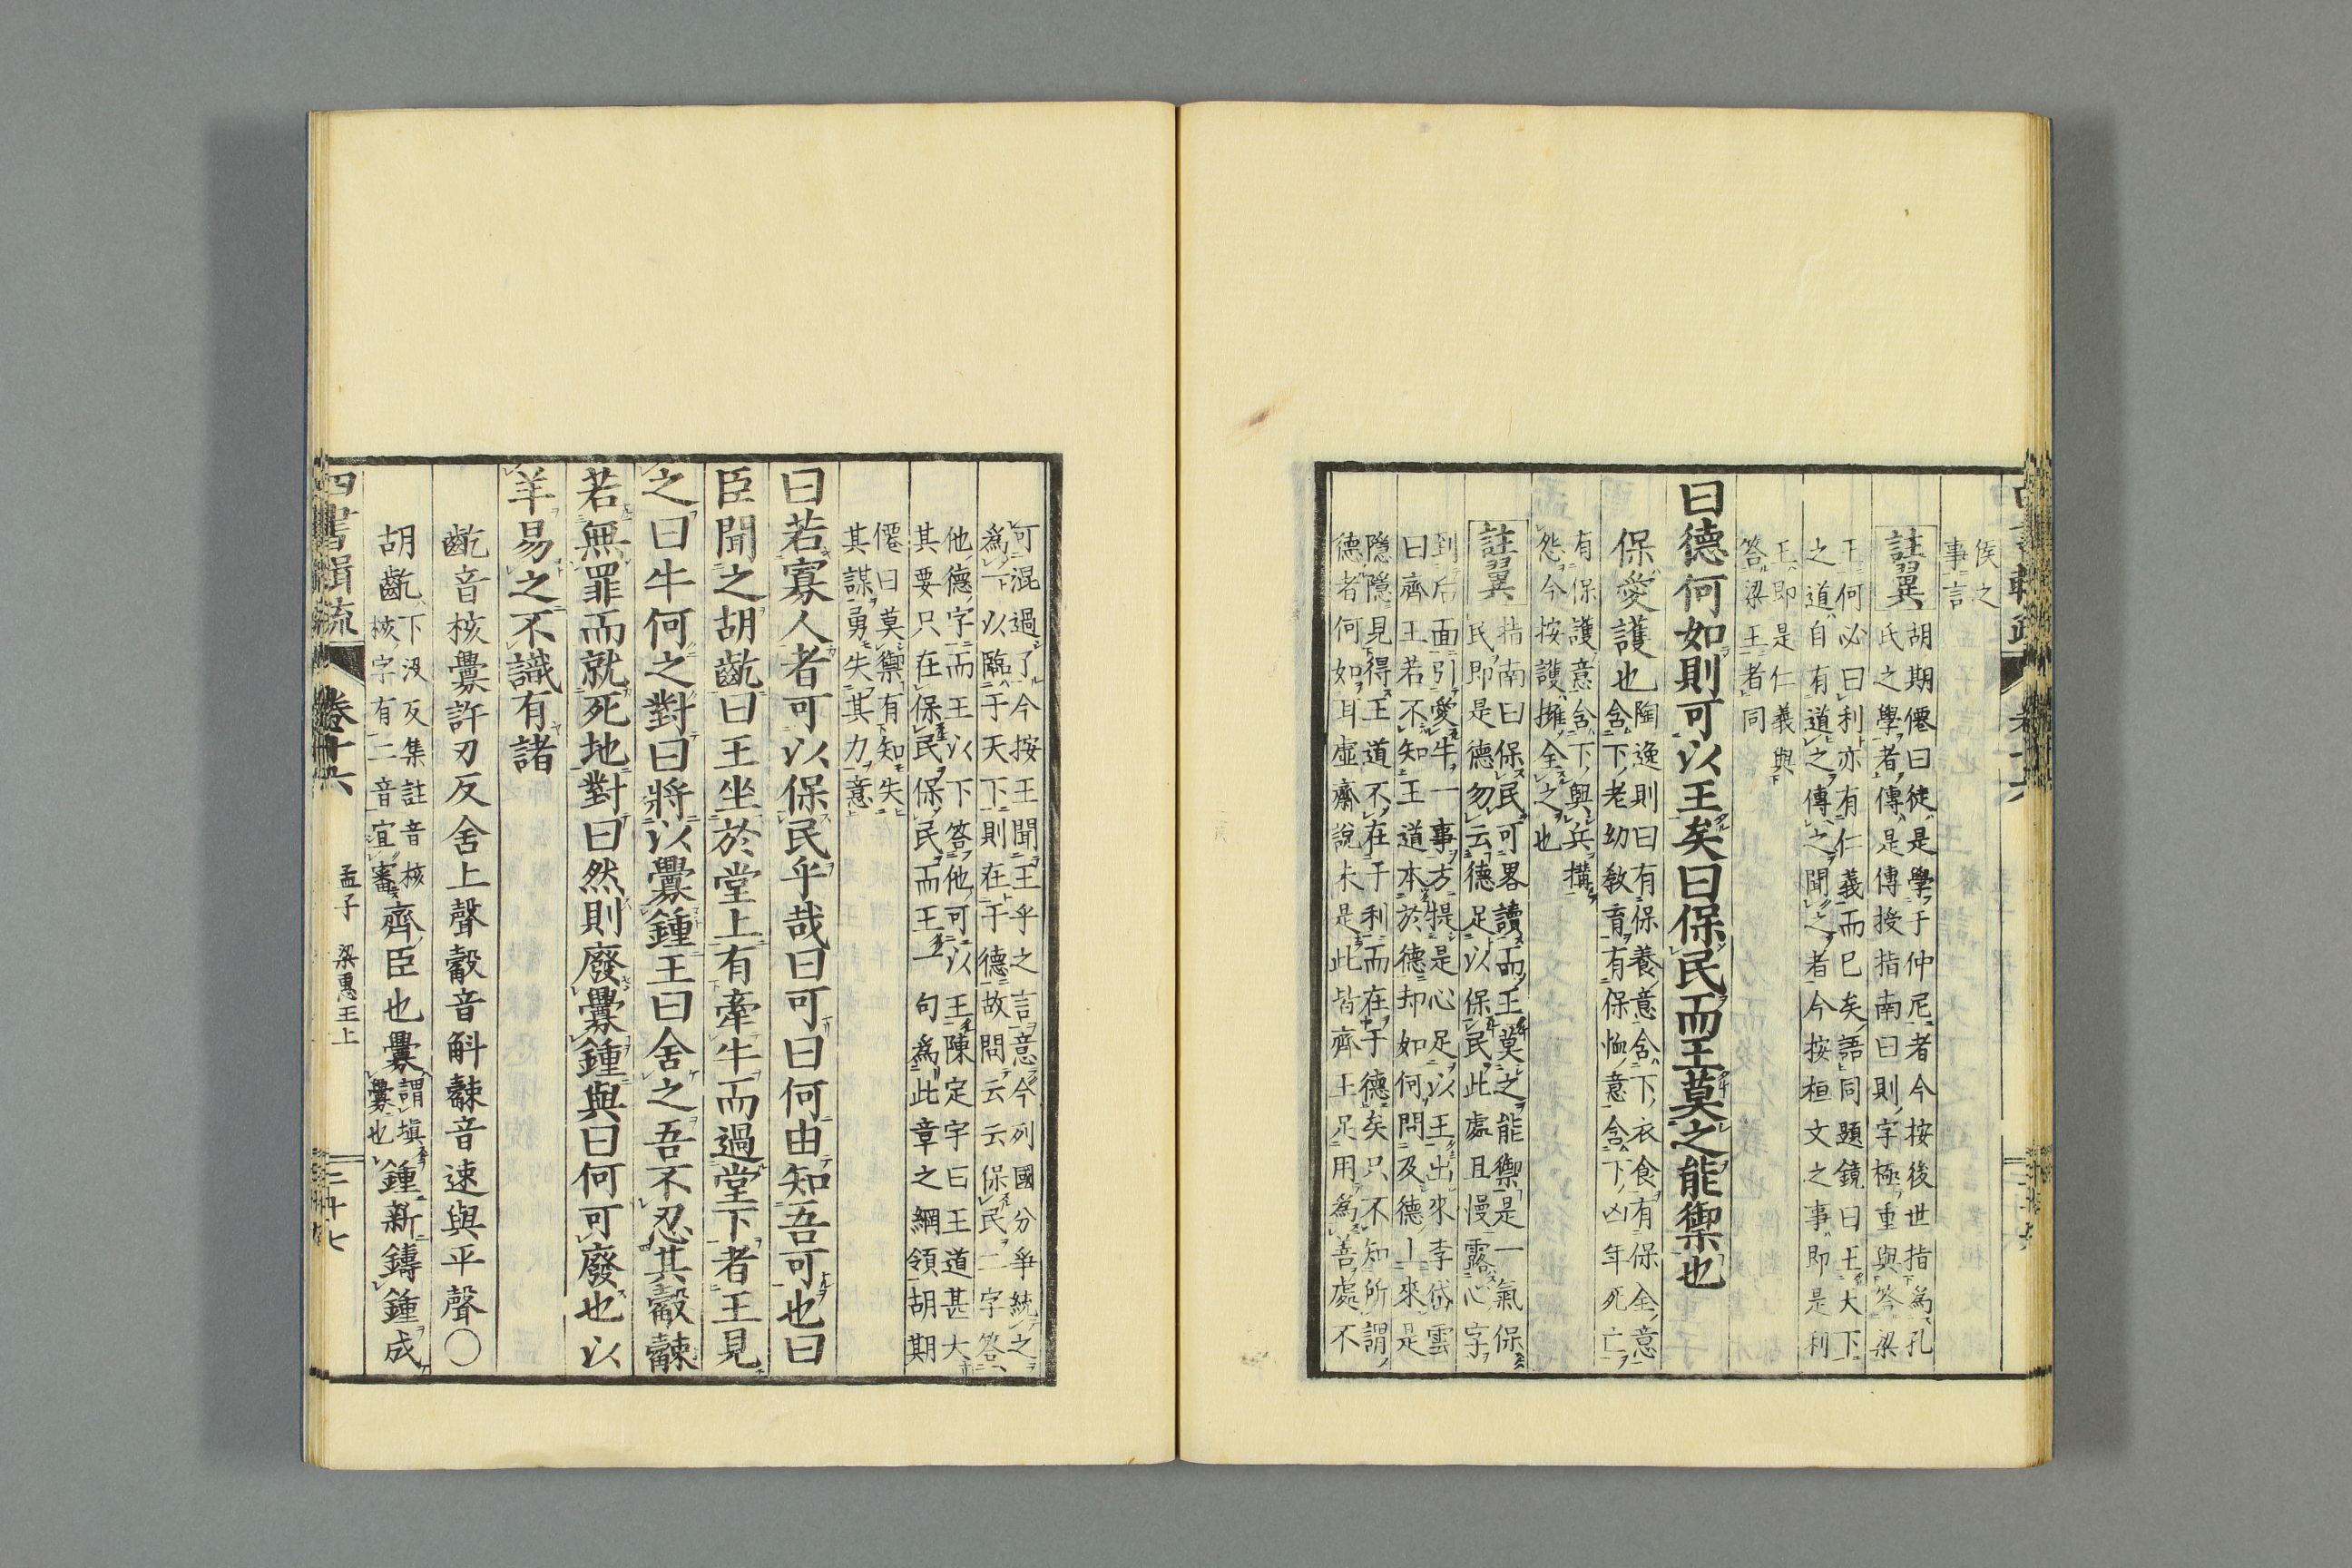 侯之
事言
註翼 胡期僊曰徒是學于仲尼者今按後世指為孔
氏之學者傳是傳授指南曰則字極重與答梁
王何必曰利亦有仁義而已矣語同題鏡曰王大下
之道自有道之傳之聞之者今按桓文之事即是利
王即是仁義與
答梁王者同
曰德何如則可以王矣曰保民而王莫之能禦也
保愛護也
陶逸則曰有保養意含下衣食有保全意
含下老幼教育有保恤意含下凶年死亡
有保護意含下興兵搆
怨今按護擁全之也
註翼 指南曰保民可畧讀而王莫之能禦是一氣保
民即是德勿云德足以保民此處且慢露心字
到后面引愛牛一事方提是心足以王出來李岱雲
曰齊王若不知王道本於德却如何問及德上來是
隱隱見得王道不在于利而在于德矣只不知所謂
德者何如耳虛齋說未是此皆齊王足用為善處不
可混過了今按王聞王乎之言意今列國分爭統之
為一以臨于天下則在于德故問云云保民二字答
他德字而王以下答他可以王陳定宇曰王道甚大
其要只在保民保民而王一句為此章之綱領胡期
僊曰莫禦有知失
其謀勇失其力意
曰若寡人者可以保民乎哉曰可曰何由知吾可也曰
臣聞之胡齕曰王坐於堂上有牽牛而過堂下者王見
之曰牛何之對曰將以釁鍾王曰舍之吾不忍其觳觫
若無罪而就死地對曰然則廢釁鍾與曰何可廢也以
羊易之不識有諸
齕音核釁許刃反舍上聲觳音斛觫音速與平聲○
胡齕
下沒反集註音核
核字有二音宜審
齊臣也釁
謂塡
釁也
鍾新鑄鍾成
四書緝疏 卷十六 孟子 梁惠王上 二十七